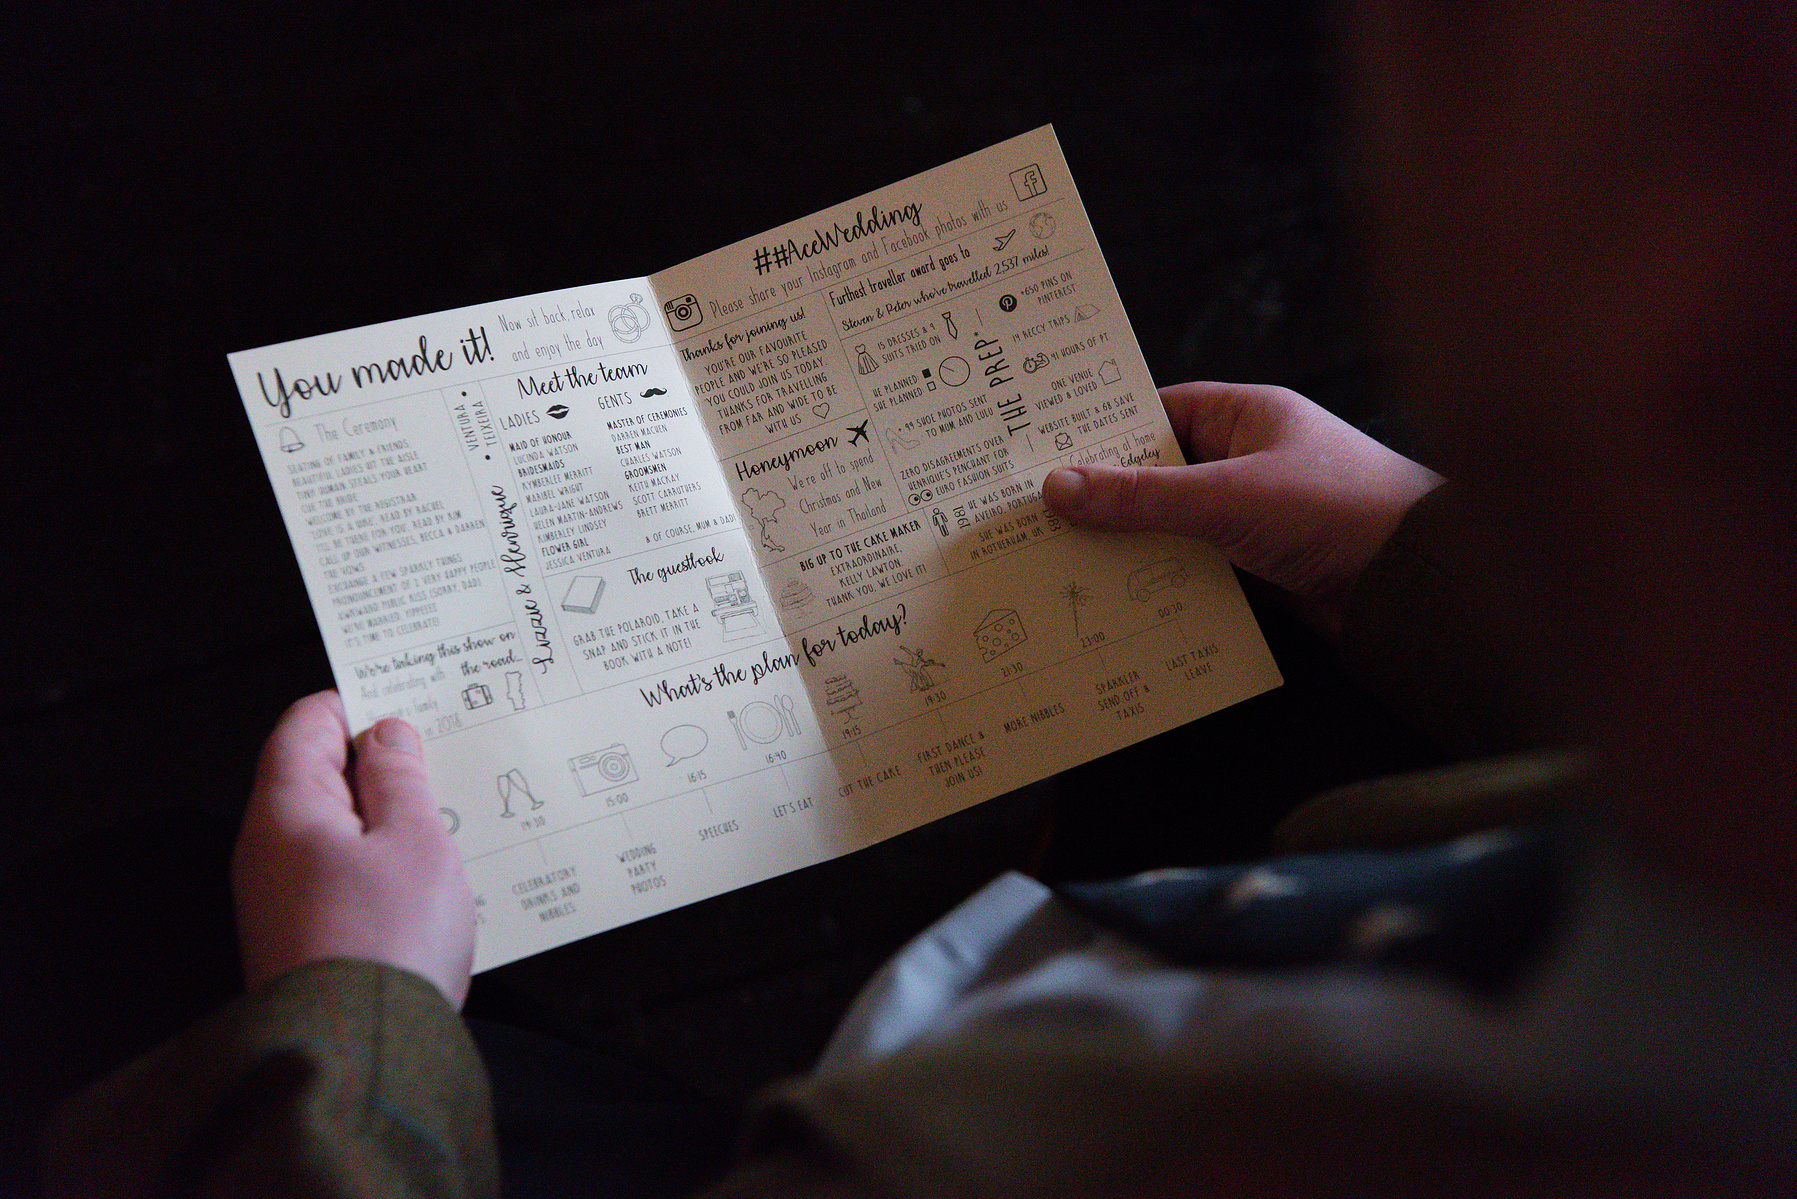 You made it!
Now sit back, relax
and enjoy the day
The Ceremony
SEATING OF FAMILY & FRIENDS
BEAUTIFUL LADIES HIT THE AISLE
TINY HUMAN STEALS YOUR HEART
CUE THE BRIDE
WELCOME BY THE REGISTRAR
'LOVE IS A WAVE', READ BY RACHEL
'I'LL BE THERE FOR YOU', READ BY KIM
CALL UP OUR WITNESSES, BECCA & DARREN
THE VOWS
EXCHANGE A FEW SPARKLY THINGS
PRONOUNCEMENT OF 2 VERY HAPPY PEOPLE
AWKWARD PUBLIC KISS (SORRY, DAD)
WE'RE MARRIED, YIPPEEEE
IT'S TIME TO CELEBRATE!
We're taking this show on
the road...
And celebrating with
family
in 2018
Lizzie & Henrique
• VENTURA •
TEIXEIRA
Meet the team
LADIES
MAID OF HONOUR
LUCINDA WATSON
BRIDESMAIDS
KYMBERLEE MERRITT
MARIBEL WRIGHT
LAURA-JANE WATSON
HELEN MARTIN-ANDREWS
KIMBERLEY LINDSEY
FLOWER GIRL
JESSICA VENTURA
GENTS
MASTER OF CEREMONIES
DARREN MACHEN
BEST MAN
CHARLES WATSON
GROOMSMEN
KEITH MACKAY
SCOTT CARRUTHERS
BRETT MERRITT
& OF COURSE, MUM & DAD!
The guestbook
GRAB THE POLAROID, TAKE A
SNAP AND STICK IT IN THE
BOOK WITH A NOTE!
##AceWedding
Please share your Instagram and Facebook photos with us
Thanks for joining us!
YOU'RE OUR FAVOURITE
PEOPLE AND WE'RE SO PLEASED
YOU COULD JOIN US TODAY.
THANKS FOR TRAVELLING
FROM FAR AND WIDE TO BE
WITH US
Furthest traveller award goes to
Steven & Peter who've travelled 2,537 miles!
Honeymoon
We're off to spend
Christmas and New
Year in Thailand
BIG UP TO THE CAKE MAKER
EXTRAORDINAIRE,
KELLY LAWTON.
THANK YOU, WE LOVE IT!
THE PREP
15 DRESSES & 9
SUITS TRIED ON
HE PLANNED
SHE PLANNED
+ 99 SHOE PHOTOS SENT
TO MUM AND LULU
ZERO DISAGREEMENTS OVER
HENRIQUE'S PENCHANT FOR
EURO FASHION SUITS
+650 PINS ON
PINTEREST
14 RECCY TRIPS
41 HOURS OF PT
ONE VENUE
VIEWED & LOVED
WEBSITE BUILT & 68 SAVE
THE DATES SENT
1981
HE WAS BORN IN
AVEIRO, PORTUGAL
SHE WAS BORN
IN ROTHERHAM, UK
1983
Celebrating at home
Edgeley
What's the plan for today?
14:30
CELEBRATORY
DRINKS AND
NIBBLES
15:00
WEDDING
PARTY
PHOTOS
16:15
SPEECHES
16:40
LET'S EAT
19:15
CUT THE CAKE
19:30
FIRST DANCE &
THEN PLEASE
JOIN US!
21:30
MORE NIBBLES
23:00
SPARKLER
SEND OFF &
TAXIS
00:30
LAST TAXIS
LEAVE